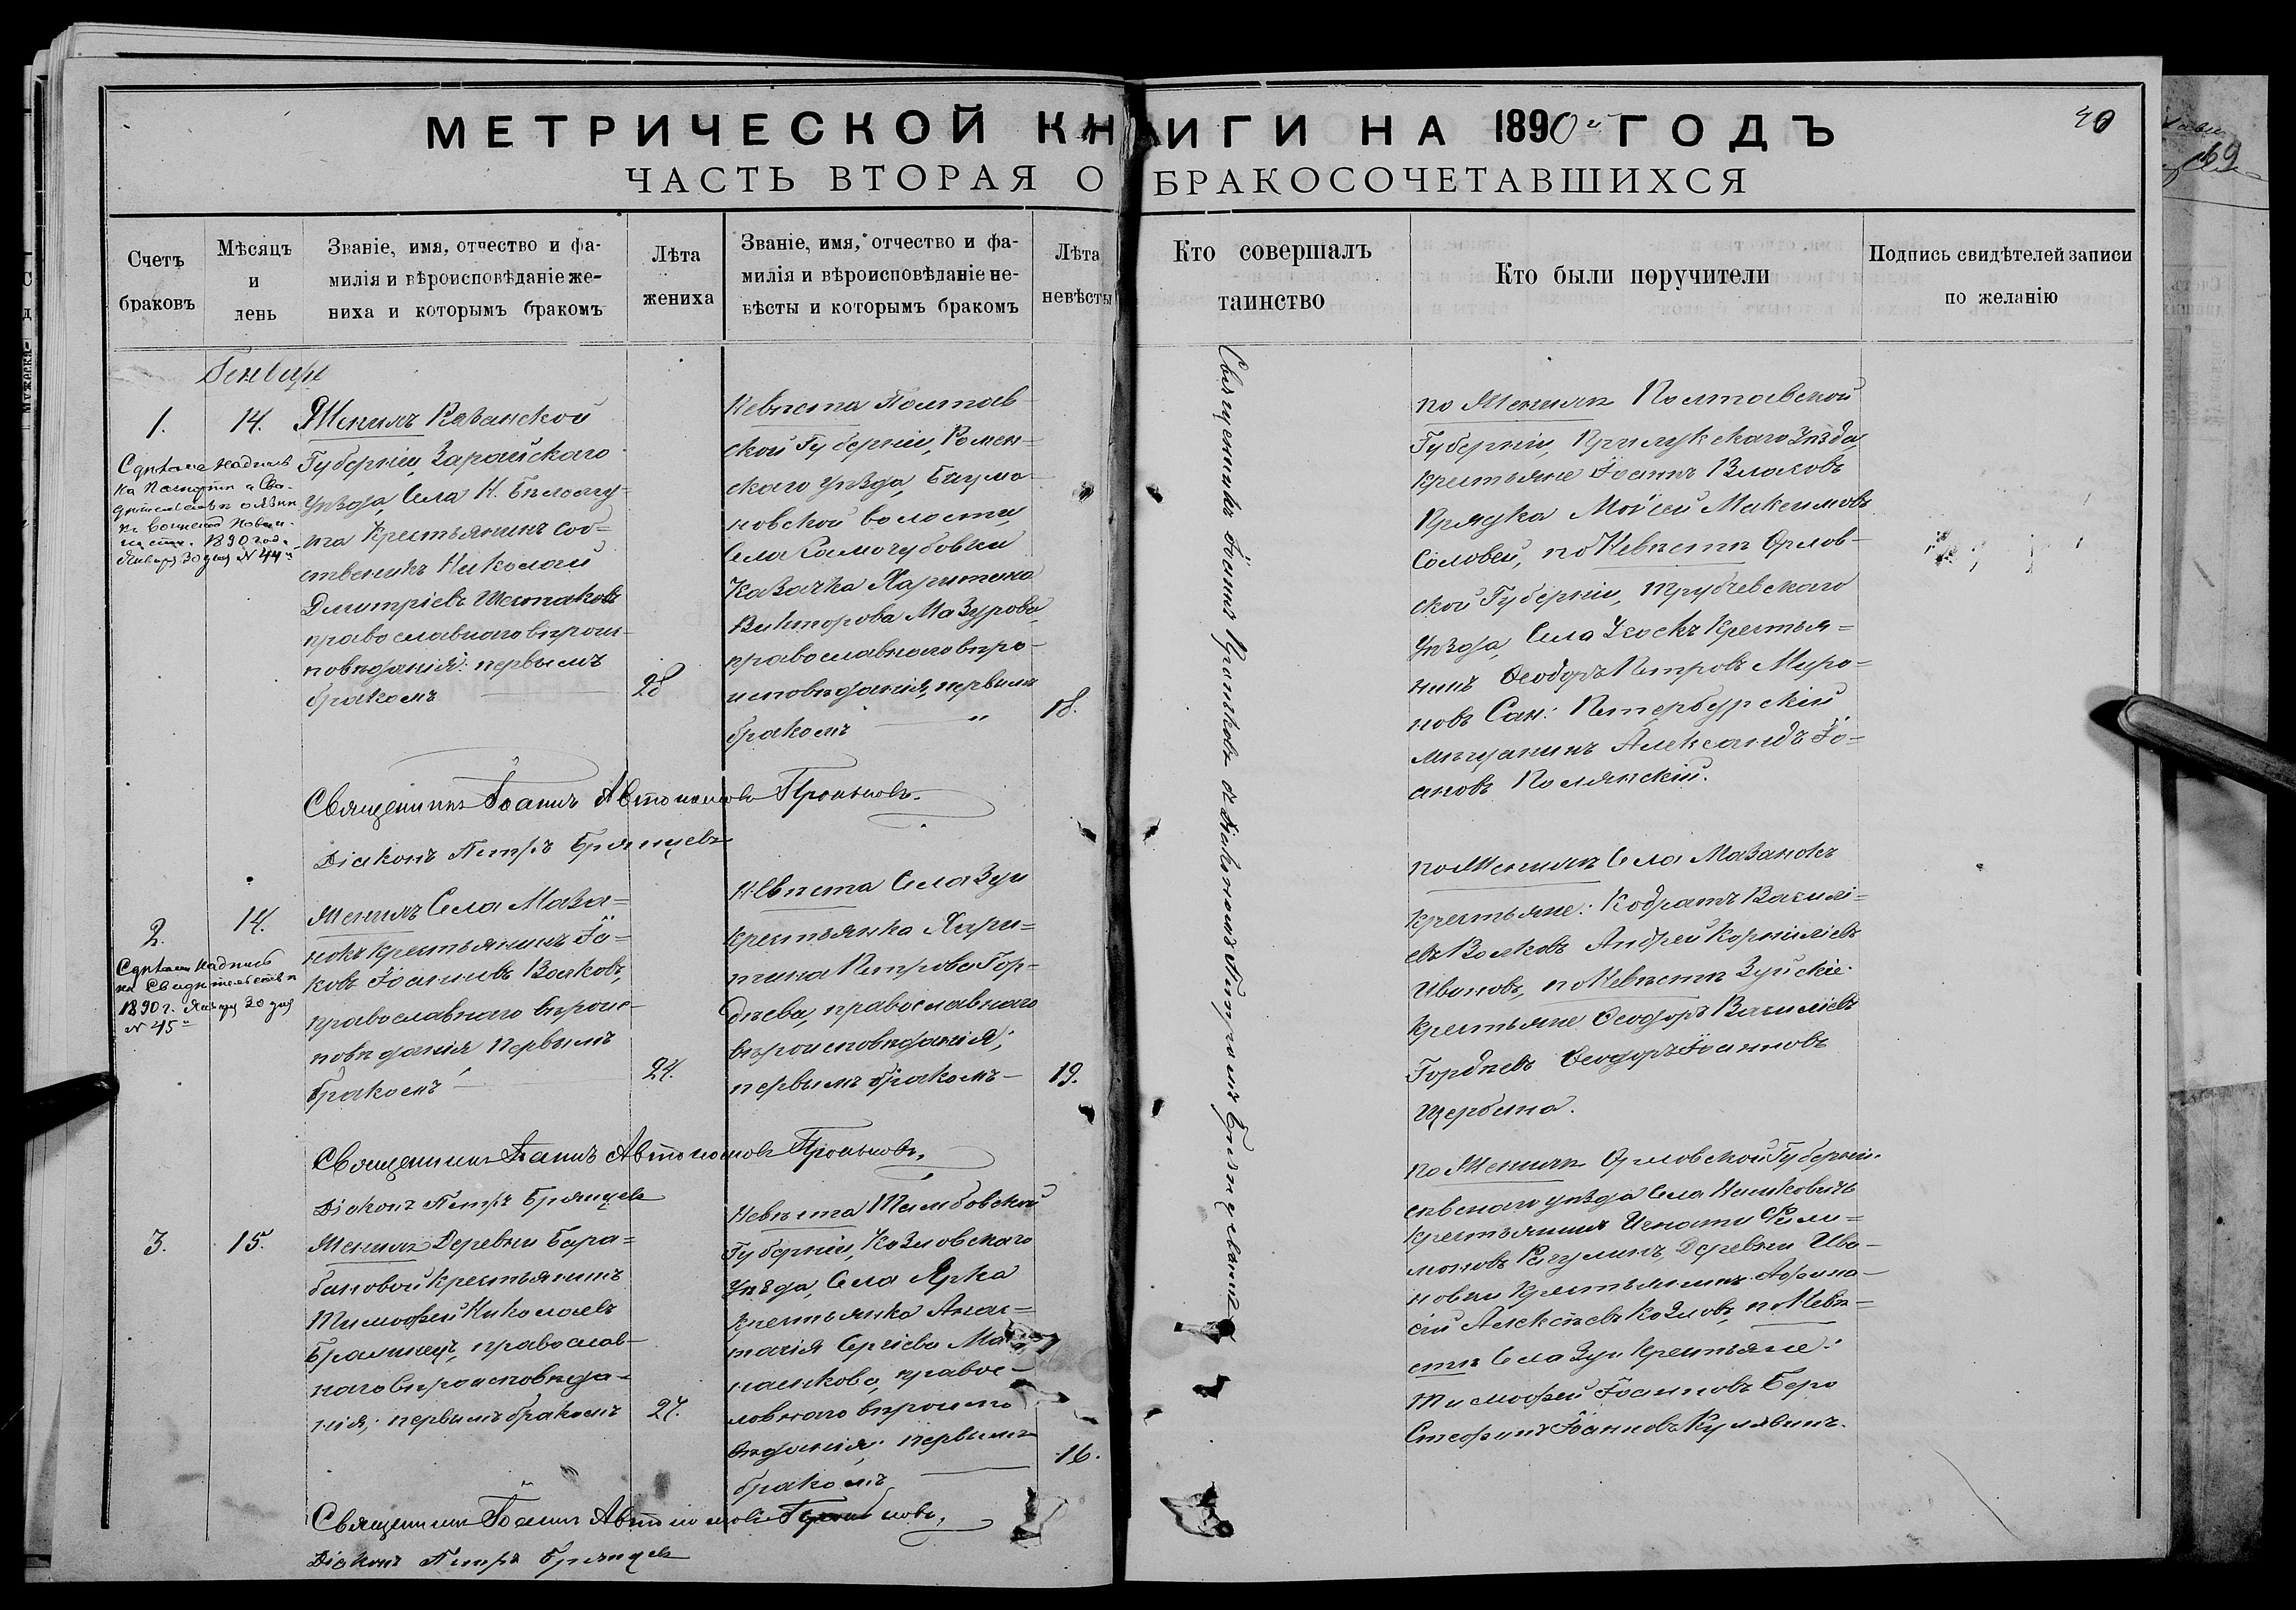 МЕТРИЧЕСКОЙ КНИГИ НА 1890й ГОДЪ
40
ЧАСТЬ ВТОРАЯ О БРАКОСОЧЕТАВШИХСЯ
Счетъ браковъ
Мѣсяцъ и день
Званіе, имя, отчество и фа-
милія и вѣроисповѣданіе же-
ниха и которымъ бракомъ
Лѣта жениха
Званіе, имя, отчество и фа-
милія и вѣроисповѣданіе не-
вѣсты и которымъ бракомъ
Лѣта невѣсты
Кто совершалъ таинство
Кто были поручители
Подпись свидѣтелей записи
по желанію
Генварь
1.
14.
Сдѣлана надпись
на Паспортѣ и Сви-
1890 года
Января 30 дня № 44й
Женихъ Рязанской
Губерніи, Зарайскаго
уѣзда, Села
Крестьянинъ соб-
ственникъ Николай
Димитріевъ Шестаковъ
православнаго вѣроис-
повѣданія: первымъ
бракомъ
28
Невѣста Полтав-
ской Губерніи, Ромен-
скаго уѣзда,
новской волости,
Села
Казачка Харитина
Викторова Мазурова,
православнаго вѣро-
исповѣданія, первымъ
бракомъ
18.
по Женихѣ Полтавской
Губерніи, Прилукскаго уѣзда,
крестьяне Іоаннъ Власовъ
Прядка Мойсей Максимовъ
Соловей, по Невѣстѣ Орлов-
ской Губерніи, Трубчевскаго
уѣзда, Села
Крестья-
нинъ Ѳеодоръ Петровъ Миро-
новъ Сан: Петербурскій
мѣщанинъ Александъ Іо-
анновъ Полянскій.
Священникъ Іоаннъ Автономовъ Проньковъ.
Діаконъ Петръ Брянцевъ
Священникъ Іоаннъ Проньковъ съ діакономъ Петромъ Брянцевымъ
2.
14.
Сдѣлана надпись
на Свидѣтельствѣ
1890 г. Января 30 дня
№ 45й
Женихъ Села Маза-
нокъ крестьянинъ Іа-
ковъ Іоанновъ Волковъ,
православнаго вѣроис-
повѣданія первымъ
бракомъ
24.
Невѣста Села Зуи
крестьянка Хари-
тина Петрова Гор-
дѣева, православнаго
вѣроисповѣданія;
первымъ бракомъ
19.
по Женихѣ Села Мазанокъ
Крестьяне: Кодратъ Василі-
евъ Волковъ Андрей Корниліевъ
Ивановъ, по Невѣстѣ Зуйскіе
Крестьяне Ѳеодоръ Василіевъ
Гордѣевъ Ѳеодоръ Іоанновъ
Щербина.
Священникъ Іоаннъ Автономовъ Проньковъ.
Діаконъ Петръ Брянцевъ
3.
15.
Женихъ Деревни Бара-
бановой крестьянинъ
Тимоѳей Николаевъ
православ-
наго вѣроисповѣда-
нія; первымъ бракомъ
24.
Невѣста Тамбовской
Губерніи, Козловскаго
уѣзда, Села Ярка
крестьянка Анас-
тасія Сергіева
правос-
лавнаго вѣроиспо-
вѣданія; первымъ
бракомъ
16.
по Женихѣ Орловской Губерніи
уѣзда Села
крестьянинъ Игнатій Фили-
моновъ
Деревни Ива-
новки Крестьянинъ Аѳана-
сій Алексѣевъ Козловъ, по Невѣ-
стѣ Села Зуи Крестьяне:
Тимоѳей Іоанновъ
Стефанъ Іоанновъ Кулявинъ.
Священникъ Іоаннъ Автономовъ Проньковъ.
Діаконъ Петръ Брянцевъ